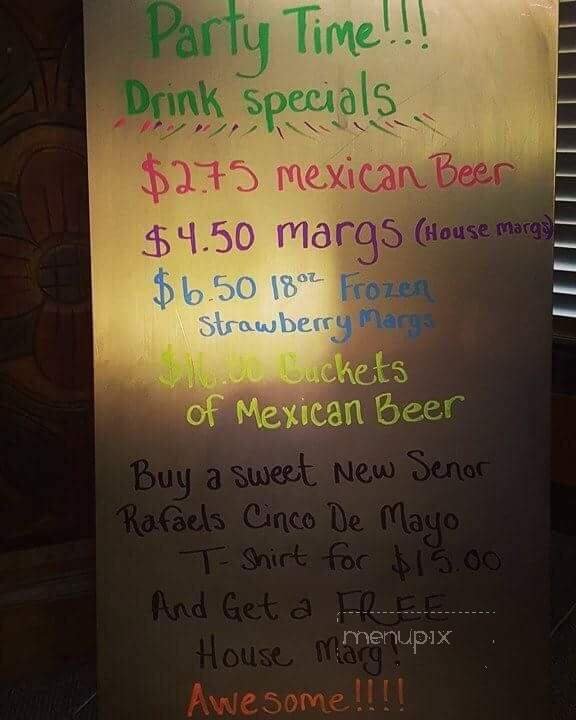 Party Time!!!
Drink specials
$2.75 mexican Beer
$4.50 margs (House margs)
$6.50 18oz Frozen
Strawberry Margs
$16.00 Buckets
of Mexican Beer
Buy a sweet New Senor
Rafaels Cinco De Mayo
T-Shirt for $15.00
And Get a FREE
menupix
House Marg!
Awesome!!!!